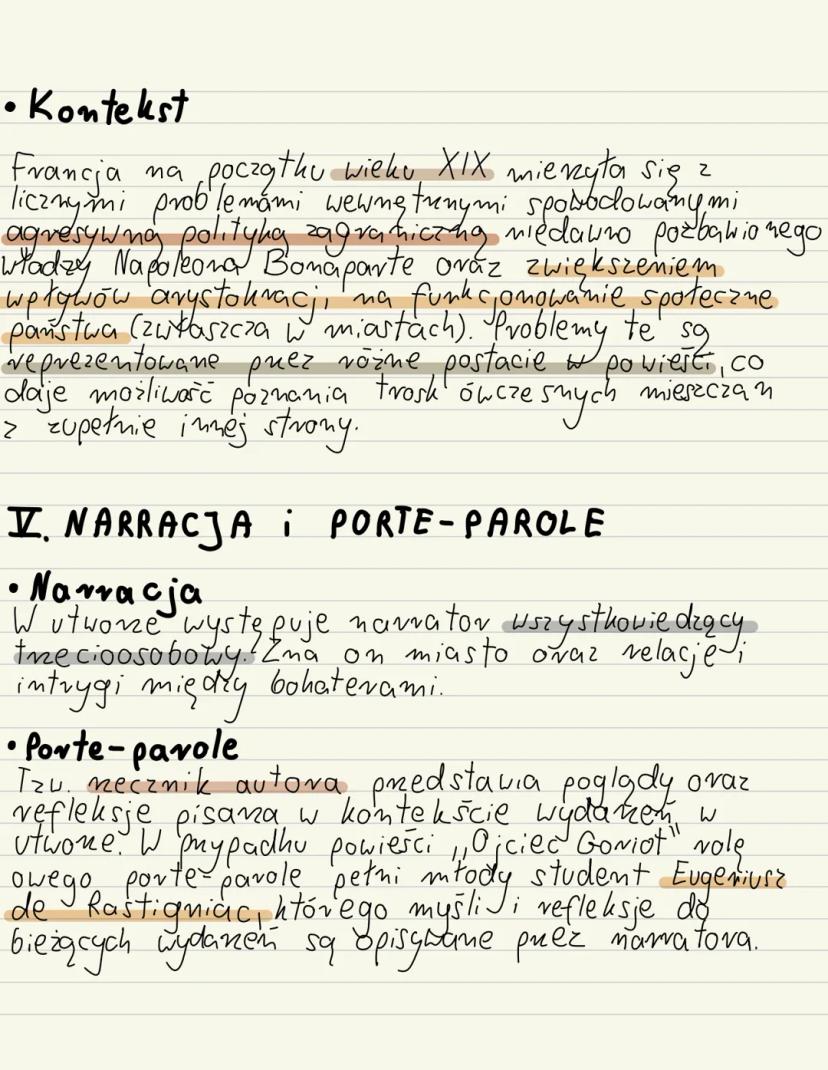 • Kontekst
Francja na początku wieku XIX mierzyła się z
licznymi problemami wewnętrznymi spowodowanymi
agresywną polityką zagraniczną niedawno pozbawionego
władzy Napoleona Bonaparte oraz zwiększeniem
wpływów arystokracji, na funkcjonowanie społeczne
państwa (zwłaszcza w miastach). Problemy te są
reprezentowane przez różne postacie w powieści, co
daje możliwość poznania trosk ówczesnych mieszczan
z zupełnie innej strony.
V. NARRACJA i PORTE-PAROLE
• Narracja
W utworze występuje narrator wszystkowiedzący
trzecioosobowy. Zna on miasto oraz relacje i
intrygi między bohaterami.
• Porte-parole
Tzw. rzecznik autora przedstawia poglądy oraz
refleksje pisarza w kontekście wydarzeń w
utworze. W przypadku powieści „Ojciec Goriot" rolę
owego porte-parole pełni młody student Eugeniusz
de Rastigniac, którego myśli i refleksje do
bieżących wydarzeń są opisywane przez narratora.